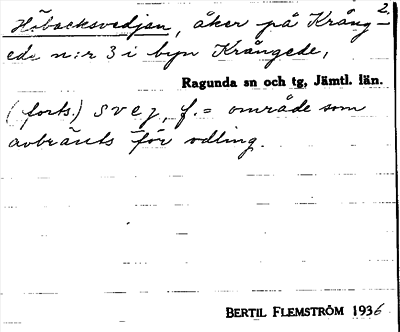 2.
Höbacksvedjan, åker på Krång-
ede n:r 3 i byn Krångede,
Ragunda sn och tg, Jämtl. län.
(forts.) svej, f. = område som
avbränts för odling.
BERTIL FLEMSTRÖM 1936